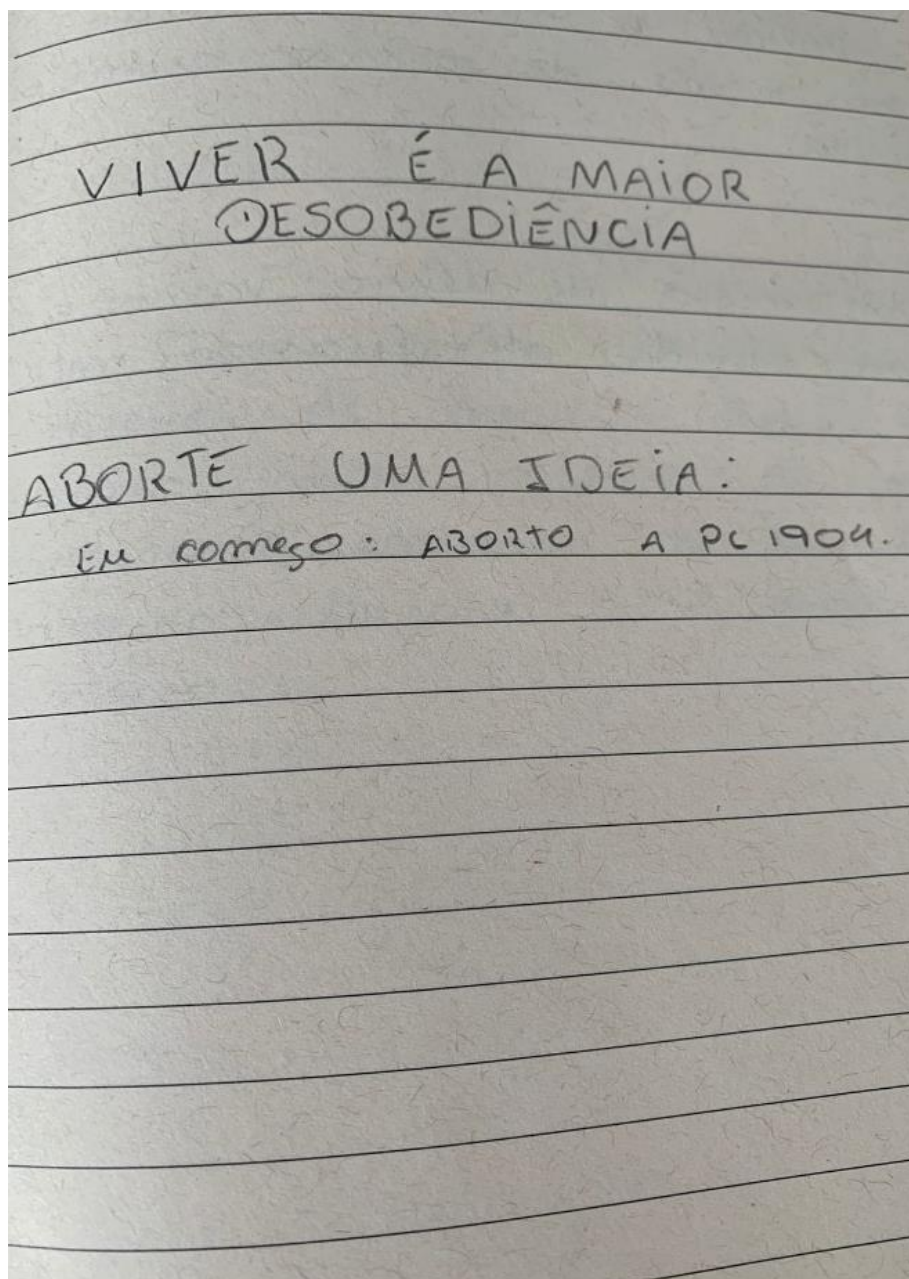 VIVER É A MAiOR
DESOBEDiÊNCiA
ABORTE UMA IDEiA:
Eu começo: ABORTO A PL 1904.